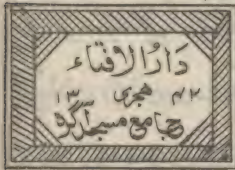 دَارُالافتاء
۱۳ هجری ۴۲
جامع مسجد آگرہ